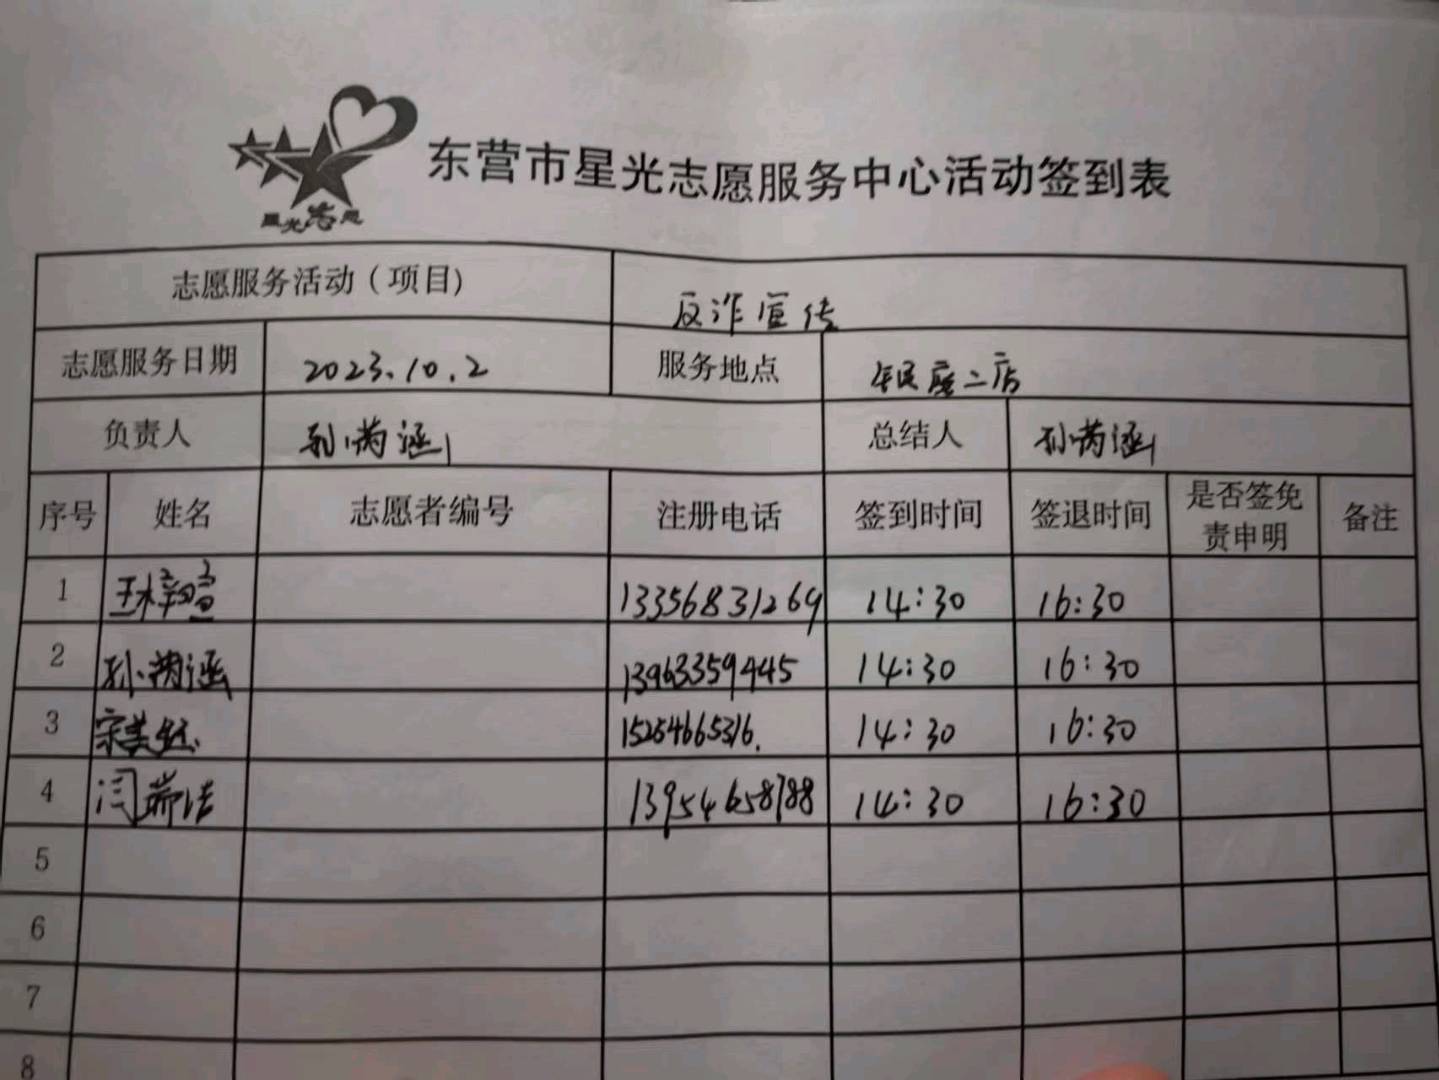 星光志愿
东营市星光志愿服务中心活动签到表
志愿服务活动（项目） 反诈宣传
志愿服务日期 2023.10.2 服务地点 二店
负责人 孙芮涵 总结人 孙芮涵
序号 姓名 志愿者编号 注册电话 签到时间 签退时间 是否签免责申明 备注
1 13356831269 14:30 16:30
2 孙芮涵 13963359445 14:30 16:30
3 宋美 15254665316. 14:30 16:30
4 闫瑞洁 13954658788 14:30 16:30
5
6
7
8